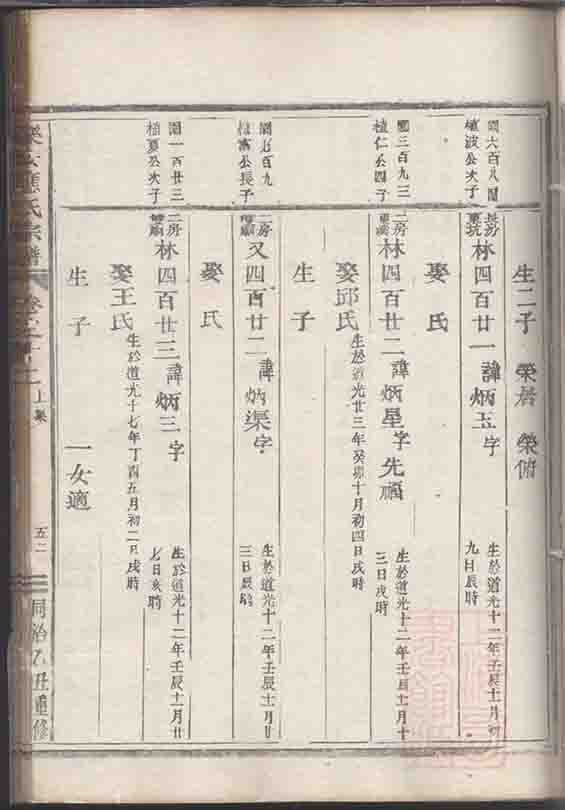 生二子 榮居 榮俯
閏六百八
植波公次子
長房
林四百廿一 諱炳玉 字
生於道光十二年壬辰十一月初
九日辰時
娶 氏
三百九
植仁公四子
二房
林四百廿二 諱炳星 字先福
生於道光十二年壬辰十一月十
三日戌時
娶邱氏 生於道光廿三年癸卯十月初四日戌時
生子
百九
公長子
二房
又四百廿二 諱炳渠 字
生於道光十二年壬辰十一月廿
三日辰時
娶 氏
一百廿三
植夏公次子
二房
林四百廿三 諱炳三 字
生於道光十二年壬辰十一月廿
七日亥時
娶王氏 生於道光十七年丁酉五月初二日戌時
生子 一女適
應氏宗譜 卷之十二 上集 五二 同治乙丑重修